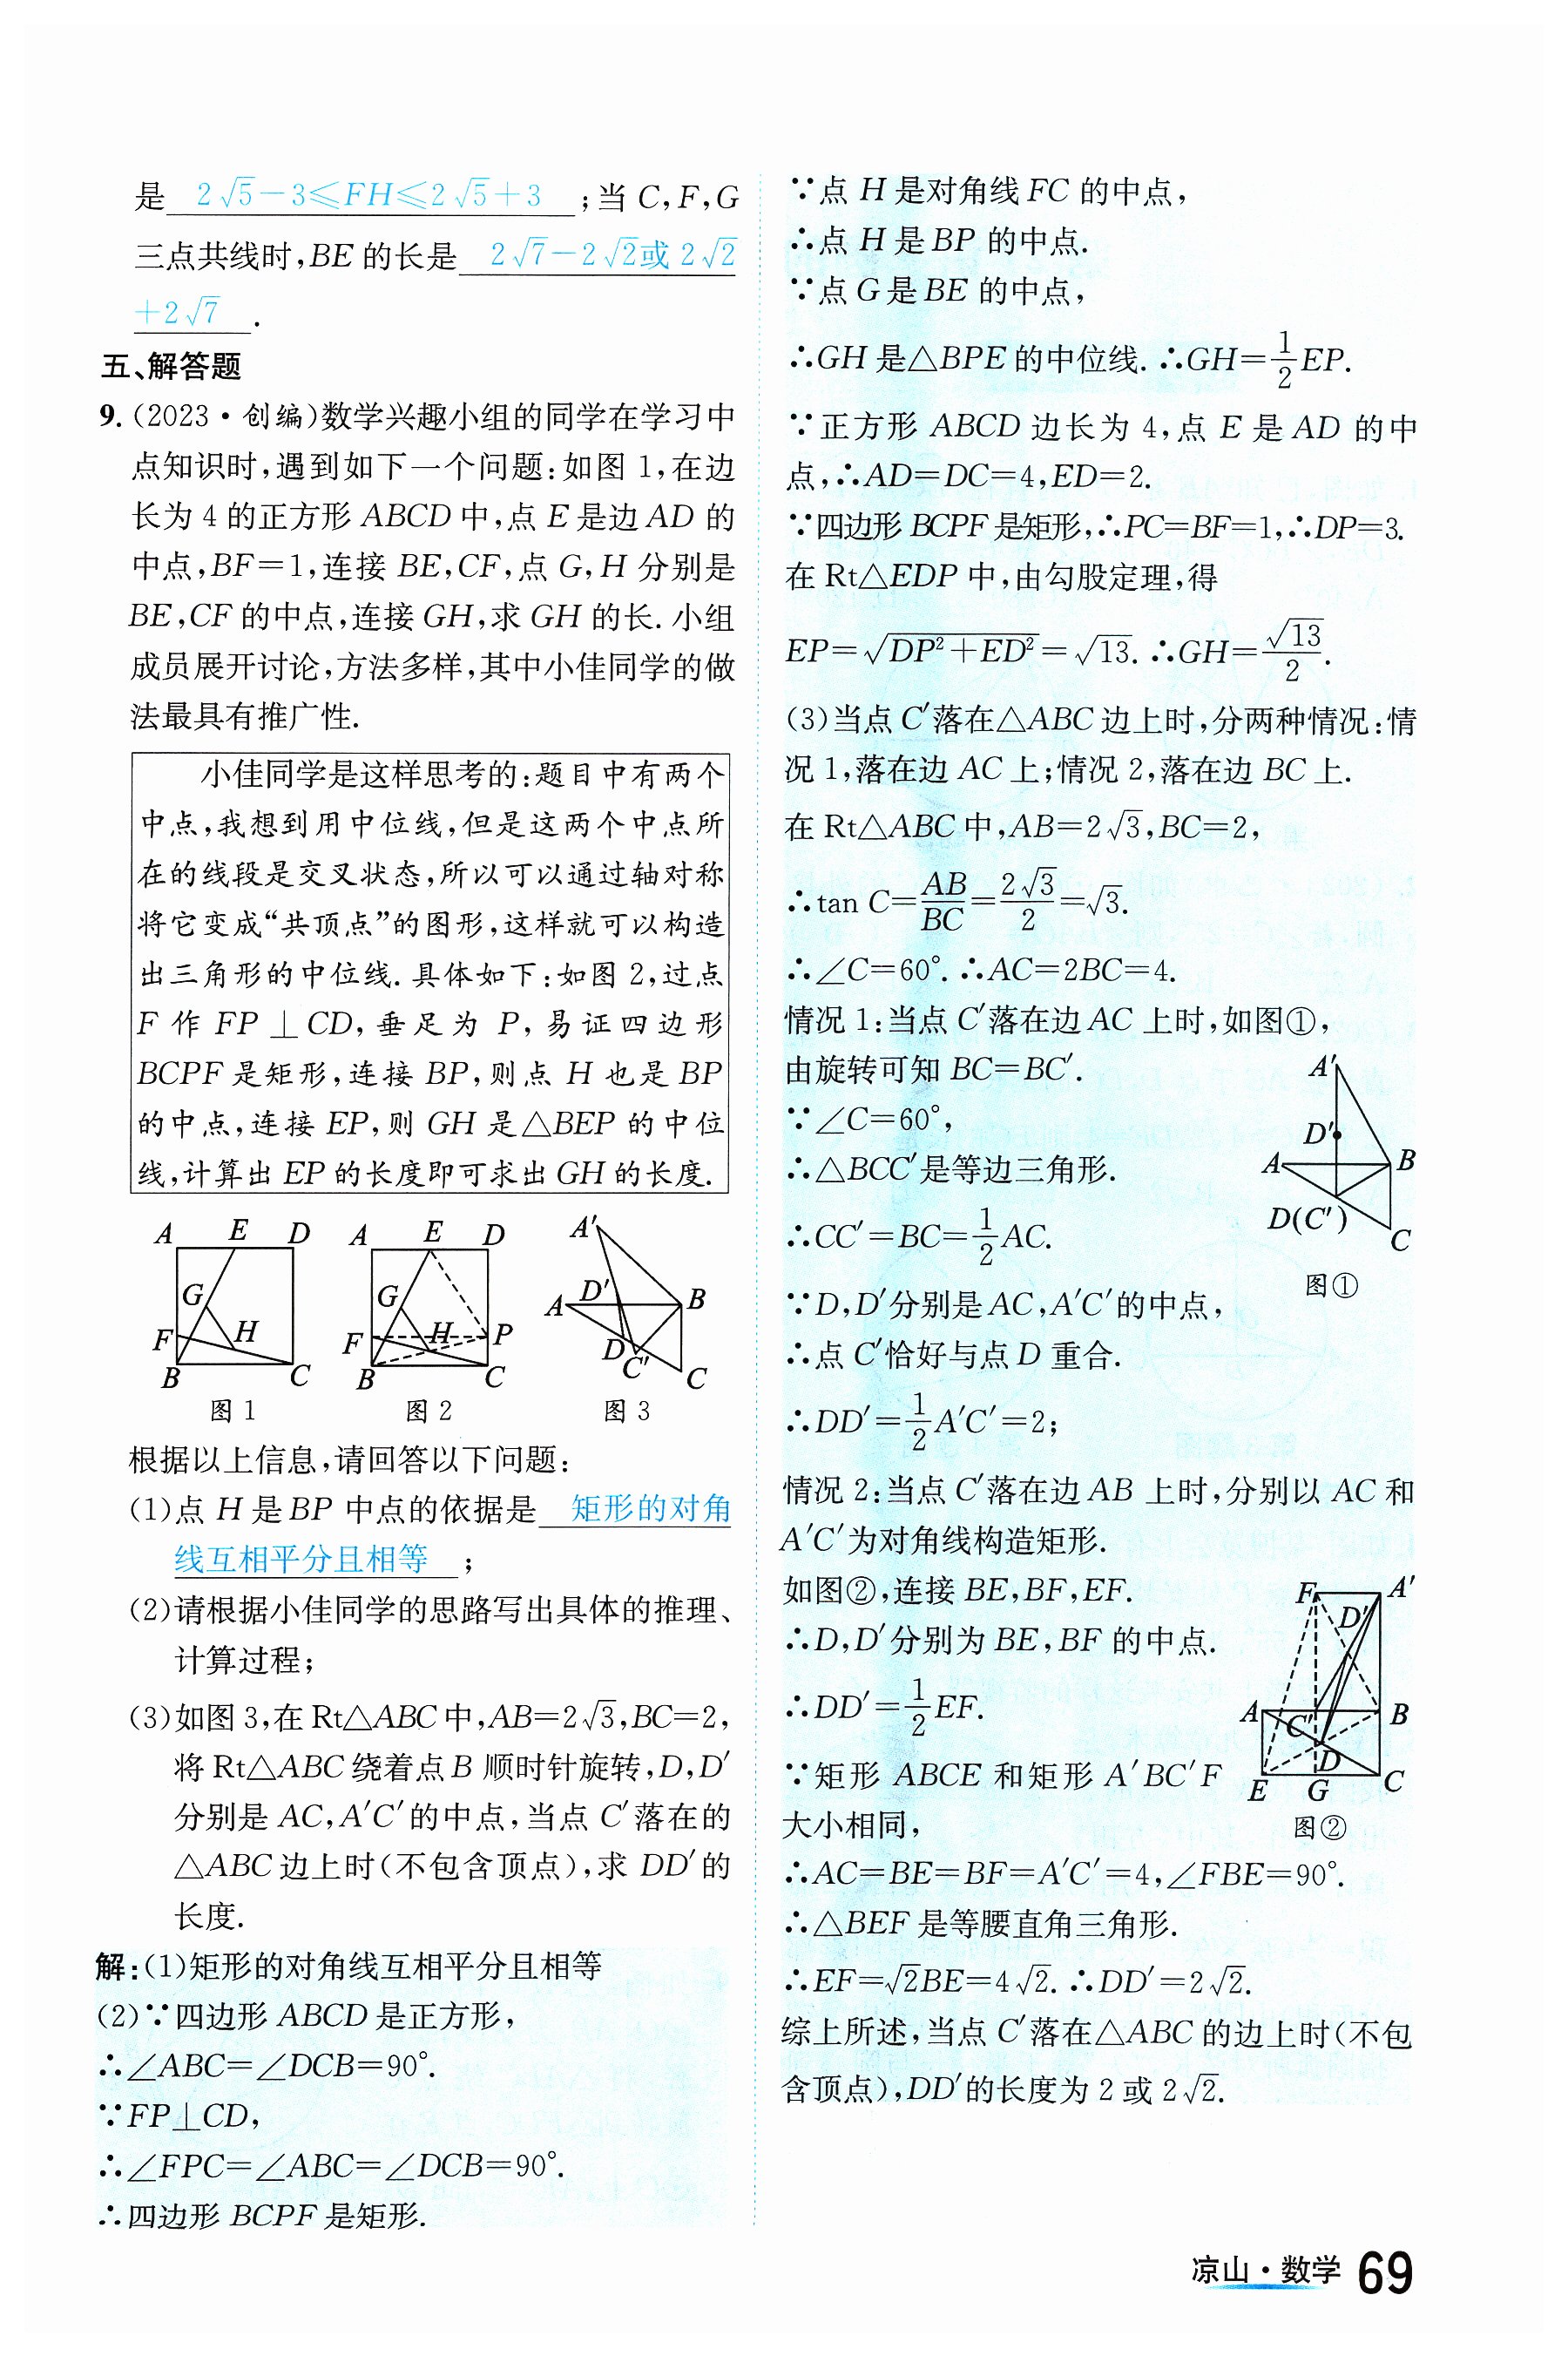 是 2√5-3≤FH≤2√5+3 ;当 C,F,G
三点共线时,BE 的长是 2√7-2√2或 2√2
+2√7 .
五、解答题
9.(2023·创编)数学兴趣小组的同学在学习中
点知识时,遇到如下一个问题:如图 1,在边
长为 4 的正方形 ABCD 中,点 E 是边 AD 的
中点,BF=1,连接 BE,CF,点 G,H 分别是
BE,CF 的中点,连接 GH,求 GH 的长. 小组
成员展开讨论,方法多样,其中小佳同学的做
法最具有推广性.
小佳同学是这样思考的:题目中有两个
中点,我想到用中位线,但是这两个中点所
在的线段是交叉状态,所以可以通过轴对称
将它变成“共顶点”的图形,这样就可以构造
出三角形的中位线. 具体如下:如图 2,过点
F 作 FP⊥CD, 垂足为 P, 易证四边形
BCPF 是矩形,连接 BP,则点 H 也是 BP
的中点,连接 EP,则 GH 是△BEP 的中位
线,计算出 EP 的长度即可求出 GH 的长度.
A E D G F H B C
图 1
A E D G F H P B C
图 2
A′ D′ A B D C′ C
图 3
根据以上信息,请回答以下问题:
(1)点 H 是 BP 中点的依据是 矩形的对角
线互相平分且相等 ;
(2)请根据小佳同学的思路写出具体的推理、
计算过程;
(3)如图 3,在 Rt△ABC 中,AB=2√3,BC=2,
将 Rt△ABC 绕着点 B 顺时针旋转,D,D′
分别是 AC,A′C′的中点,当点 C′落在的
△ABC 边上时(不包含顶点),求 DD′的
长度.
解:(1)矩形的对角线互相平分且相等
(2)∵四边形 ABCD 是正方形,
∴∠ABC=∠DCB=90°.
∵FP⊥CD,
∴∠FPC=∠ABC=∠DCB=90°.
∴四边形 BCPF 是矩形.
∵点 H 是对角线 FC 的中点,
∴点 H 是 BP 的中点.
∵点 G 是 BE 的中点,
∴GH 是△BPE 的中位线. ∴GH=1/2EP.
∵正方形 ABCD 边长为 4,点 E 是 AD 的中
点,∴AD=DC=4,ED=2.
∵四边形 BCPF 是矩形,∴PC=BF=1,∴DP=3.
在 Rt△EDP 中,由勾股定理,得
EP=√(DP²+ED²)=√13. ∴GH=√13/2.
(3)当点 C′落在△ABC 边上时,分两种情况:情
况 1,落在边 AC 上;情况 2,落在边 BC 上.
在 Rt△ABC 中,AB=2√3,BC=2,
∴tan C=AB/BC=2√3/2=√3.
∴∠C=60°. ∴AC=2BC=4.
情况 1:当点 C′落在边 AC 上时,如图①,
由旋转可知 BC=BC′.
∵∠C=60°,
∴△BCC′是等边三角形.
∴CC′=BC=1/2AC.
∵D,D′分别是 AC,A′C′的中点,
∴点 C′恰好与点 D 重合.
∴DD′=1/2A′C′=2;
A′ D′ A B D(C′) C
图①
情况 2:当点 C′落在边 AB 上时,分别以 AC 和
A′C′为对角线构造矩形.
如图②,连接 BE,BF,EF.
∴D,D′分别为 BE,BF 的中点.
∴DD′=1/2EF.
∵矩形 ABCE 和矩形 A′BC′F
大小相同,
F A′ D′ A C′ B D E G C
图②
∴AC=BE=BF=A′C′=4,∠FBE=90°.
∴△BEF 是等腰直角三角形.
∴EF=√2BE=4√2. ∴DD′=2√2.
综上所述,当点 C′落在△ABC 的边上时(不包
含顶点),DD′的长度为 2 或 2√2.
凉山·数学 69